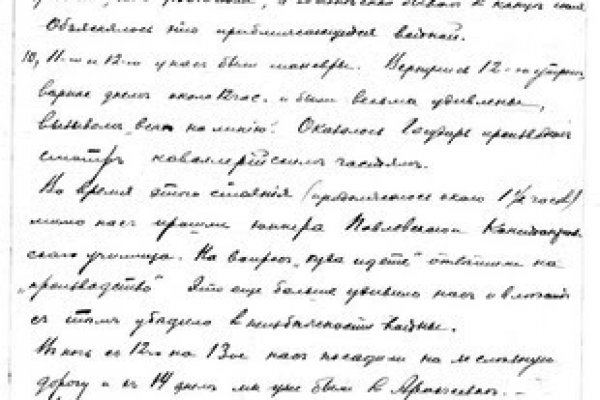 Объяснялось это приближающейся войной.
10, 11-го и 12-го у нас были маневры. Вернулись 12-го утром,
вернее днем около 12 час. и были весьма удивлены,
вызовом „всем на линию". Оказалось Государь производит
смотр кавалерийским частям.
Во время этого стояния (продолжалось около 1½ часов)
мимо нас прошли юнкера Павловского
училища. На вопрос „куда идете" ответили на
„производство" Это еще больше удивило нас и
с тем убедило в неизбежности войны.
В ночь с 12-го на 13-ое нас посадили на железную
дорогу и 14 днем мы уже были в